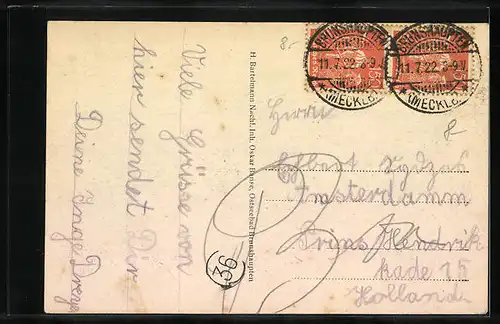 Viele Grüsse von
hier sendet Dir
Deine Inge
H. Bartelmann Nachf. Inh. Oskar Ostseebad Brunshaupten
36
BRUNSHAUPTEN
11.7.22. 8-9V
(MECKLB.)
BRUNSHAUPTEN
11.7.22. 8-9V
(MECKLB.)
8.-
Herrn
Amsterdamm
Prins Hendrik
kade 15
Holland